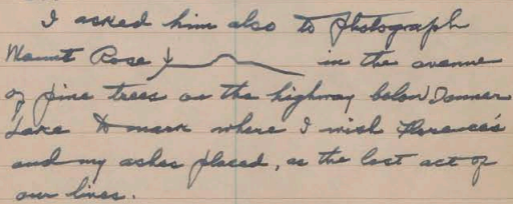 I asked him also to photograph
Mount Rose in the avenue
of pine trees on the highway below Donner
Lake to mark where I wish Florence's
and my ashes placed, as the last act of
our lives.